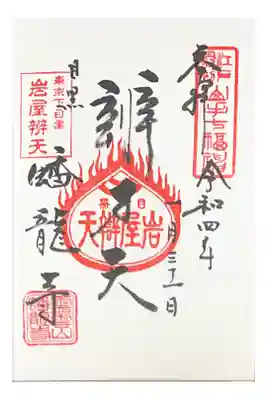 山手七福神
奉拝
令和四年
一月三十一日
辨才天
目黒
岩屋辨天
目黒
東京下目黒
岩屋辨天
蟠龍寺